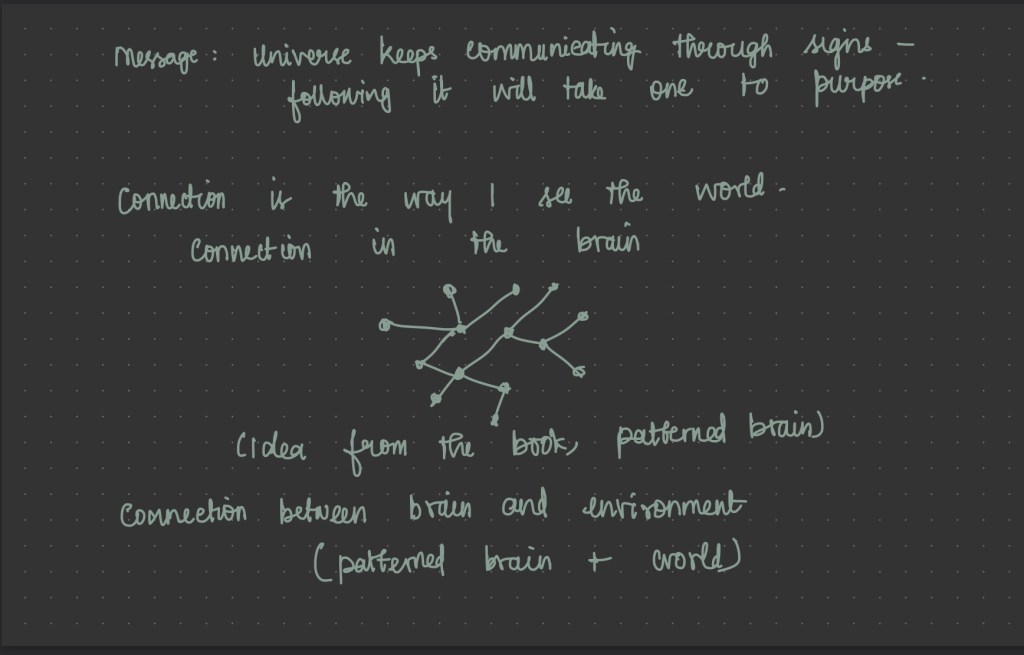 Message: Universe keeps communicating through signs –
following it will take one to purpose.
Connection is the way I see the world.
Connection in the brain
(Idea from the book, patterned brain)
Connection between brain and environment
(patterned brain + world)